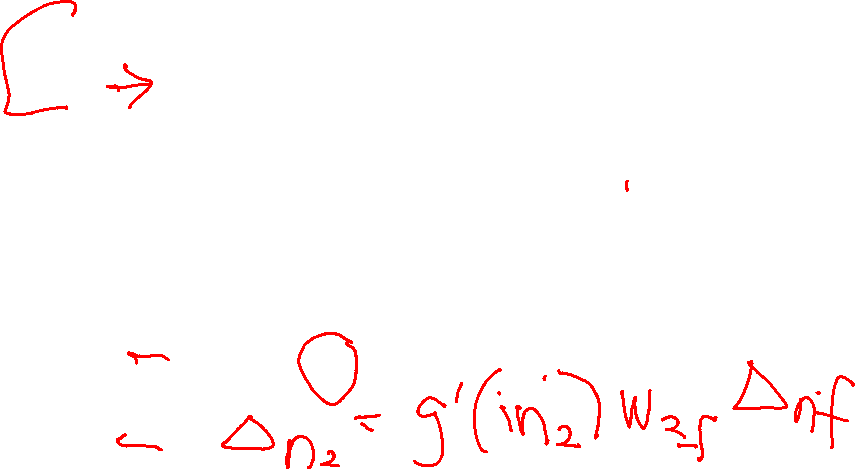 [ →
Δn₂ = g'(in₂) w₂f Δnf